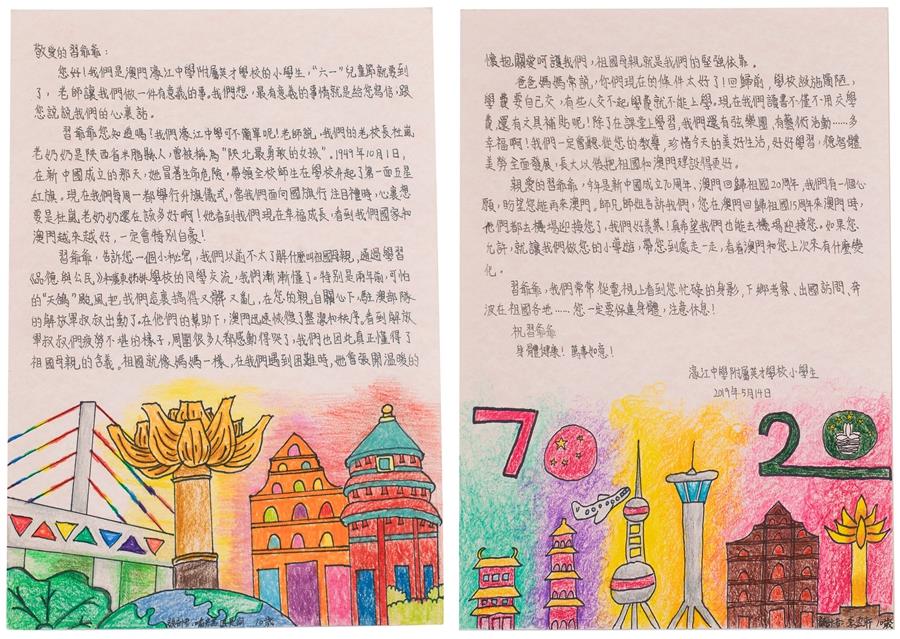 敬愛的習爺爺：
您好！我們是澳門濠江中學附屬英才學校的小學生，“六一”兒童節就要到
了，老師讓我們做一件有意義的事。我們想，最有意義的事情就是給您寫信，跟
您說說我們的心裏話。
習爺爺您知道嗎！我們濠江中學可不簡單呢！老師說，我們的老校長杜嵐
老奶奶是陝西省米脂縣人，曾被稱為“陝北最勇敢的女孩”。1949年10月1日，
在新中國成立的那天，她冒著生命危險，帶領全校師生在學校升起了第一面五星
紅旗。現在我們每周一都舉行升旗儀式，當我們面向國旗行注目禮時，心裏想
要是杜嵐老奶奶還在該多好啊！她看到我們現在幸福成長，看到我們國家和
澳門越來越好，一定會特別自豪！
習爺爺，告訴您一個小秘密，我們以前不太了解什麼叫祖國母親，通過學習
《品德與公民》和 學校的同學交流，我們漸漸懂了。特別是兩年前，可怕
的“天鴿”颱風把我們這裏搞得又髒又亂，在您的親自關心下，駐澳部隊
的解放軍叔叔出動了。在他們的幫助下，澳門迅速恢復了整潔和秩序。看到解放
軍叔叔們疲勞不堪的樣子，周圍很多人都感動得哭了，我們也因此真正懂得了
祖國母親的含義。祖國就像媽媽一樣，在我們遇到困難時，她會張開溫暖的
懷抱，關愛呵護我們，祖國母親就是我們的堅強依靠。
爸爸媽媽常說，你們現在的條件太好了！回歸前，學校設施簡陋，
學費要自己交，有些人交不起學費就不能上學。現在我們讀書不僅不用交學
費，還有文具補貼呢！除了在課堂上學習，我們還有弦樂團，有藝術活動……多
幸福啊！我們一定會聽從您的教導，珍惜今天的美好生活，好好學習，德智體
美勞全面發展，長大以後把祖國和澳門建設得更好。
親愛的習爺爺，今年是新中國成立70周年、澳門回歸祖國20周年，我們有一個心
願，盼望您能再來澳門。師兄師姐告訴我們，您在澳門回歸祖國15周年來澳門時，
他們都去機場迎接您了，我們好羨慕！真希望我們也能去機場迎接您。如果您
允許，就讓我們做您的小導遊，帶您到處走一走，看看澳門和您上次來有什麼變
化。
習爺爺，我們常常從電視上看到您忙碌的身影，下鄉考察、出國訪問、奔
波在祖國各地……您一定要保重身體，注意休息！
祝習爺爺
身體健康！萬事如意！
濠江中學附屬英才學校小學生
2019年5月14日
70
20
10歲
10歲